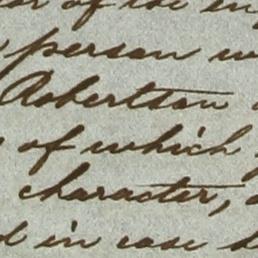 of the
person
Robertson
of which
character,
in case